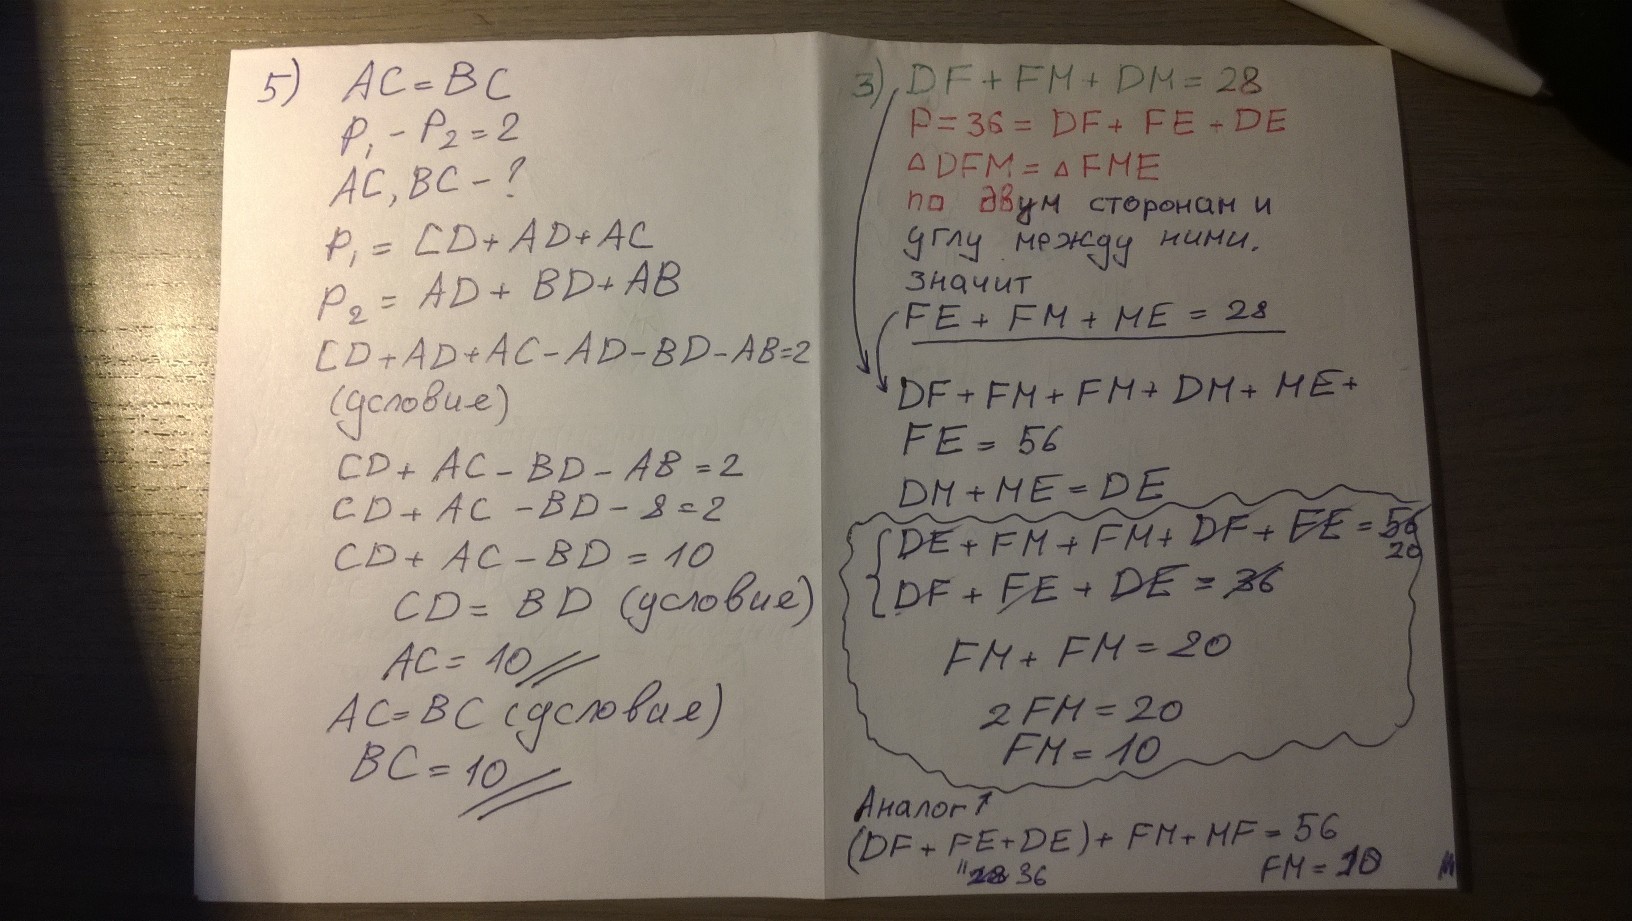 5) AC = BC
P₁ - P₂ = 2
AC, BC - ?
P₁ = CD + AD + AC
P₂ = AD + BD + AB
CD + AD + AC - AD - BD - AB = 2
(условие)
CD + AC - BD - AB = 2
CD + AC - BD - 8 = 2
CD + AC - BD = 10
CD = BD (условие)
AC = 10
AC = BC (условие)
BC = 10
3) DF + FM + DM = 28
P = 36 = DF + FE + DE
△DFM = △FME
по двум сторонам и
углу между ними.
значит
FE + FM + ME = 28
DF + FM + FM + DM + ME +
FE = 56
DM + ME = DE
DE + FM + FM + DF + FE = 56
20
DF + FE + DE = 36
FM + FM = 20
2 FM = 20
FM = 10
Аналог ↑
(DF + FE + DE) + FM + MF = 56
" 28 36
FM = 10